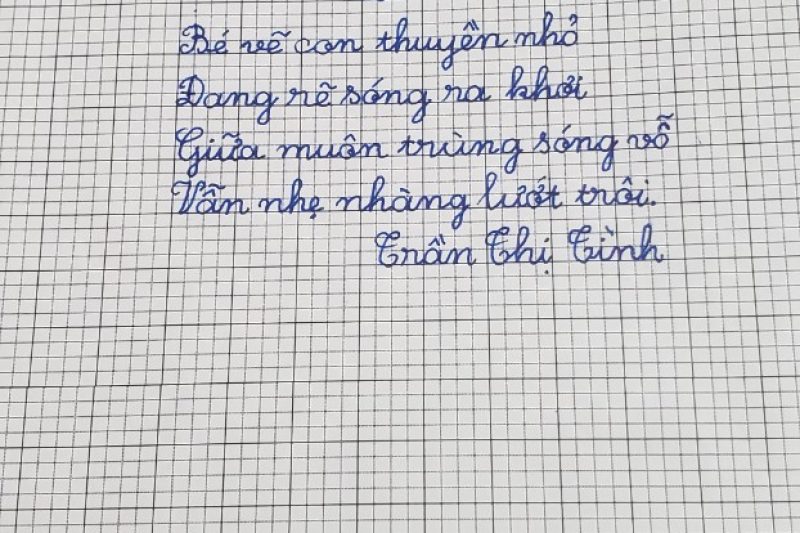 Bé vẽ con thuyền nhỏ
Đang rẽ sóng ra khơi
Giữa muôn trùng sóng vỗ
Vẫn nhẹ nhàng lướt trôi.
Trần Thị Tình